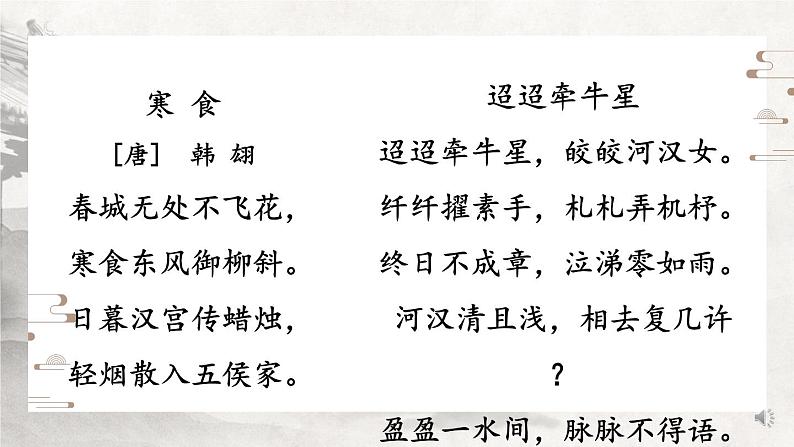 寒 食
[唐] 韩 翃
春城无处不飞花，
寒食东风御柳斜。
日暮汉宫传蜡烛，
轻烟散入五侯家。
迢迢牵牛星
迢迢牵牛星，皎皎河汉女。
纤纤擢素手，札札弄机杼。
终日不成章，泣涕零如雨。
河汉清且浅，相去复几许
？
盈盈一水间，脉脉不得语。